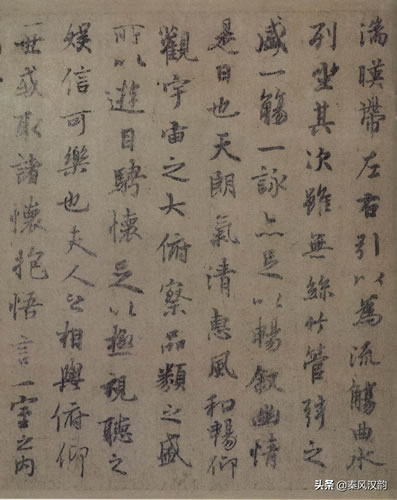 湍暎帶左右引以為流觴曲水
列坐其次雖無絲竹管弦之
盛一觴一詠亦足以暢叙幽情
是日也天朗氣清惠風和暢仰
觀宇宙之大俯察品類之盛
所以遊目騁懷足以極視聽之
娛信可樂也夫人之相與俯仰
一世或取諸懷抱悟言一室之內
头条 @秦风汉韵